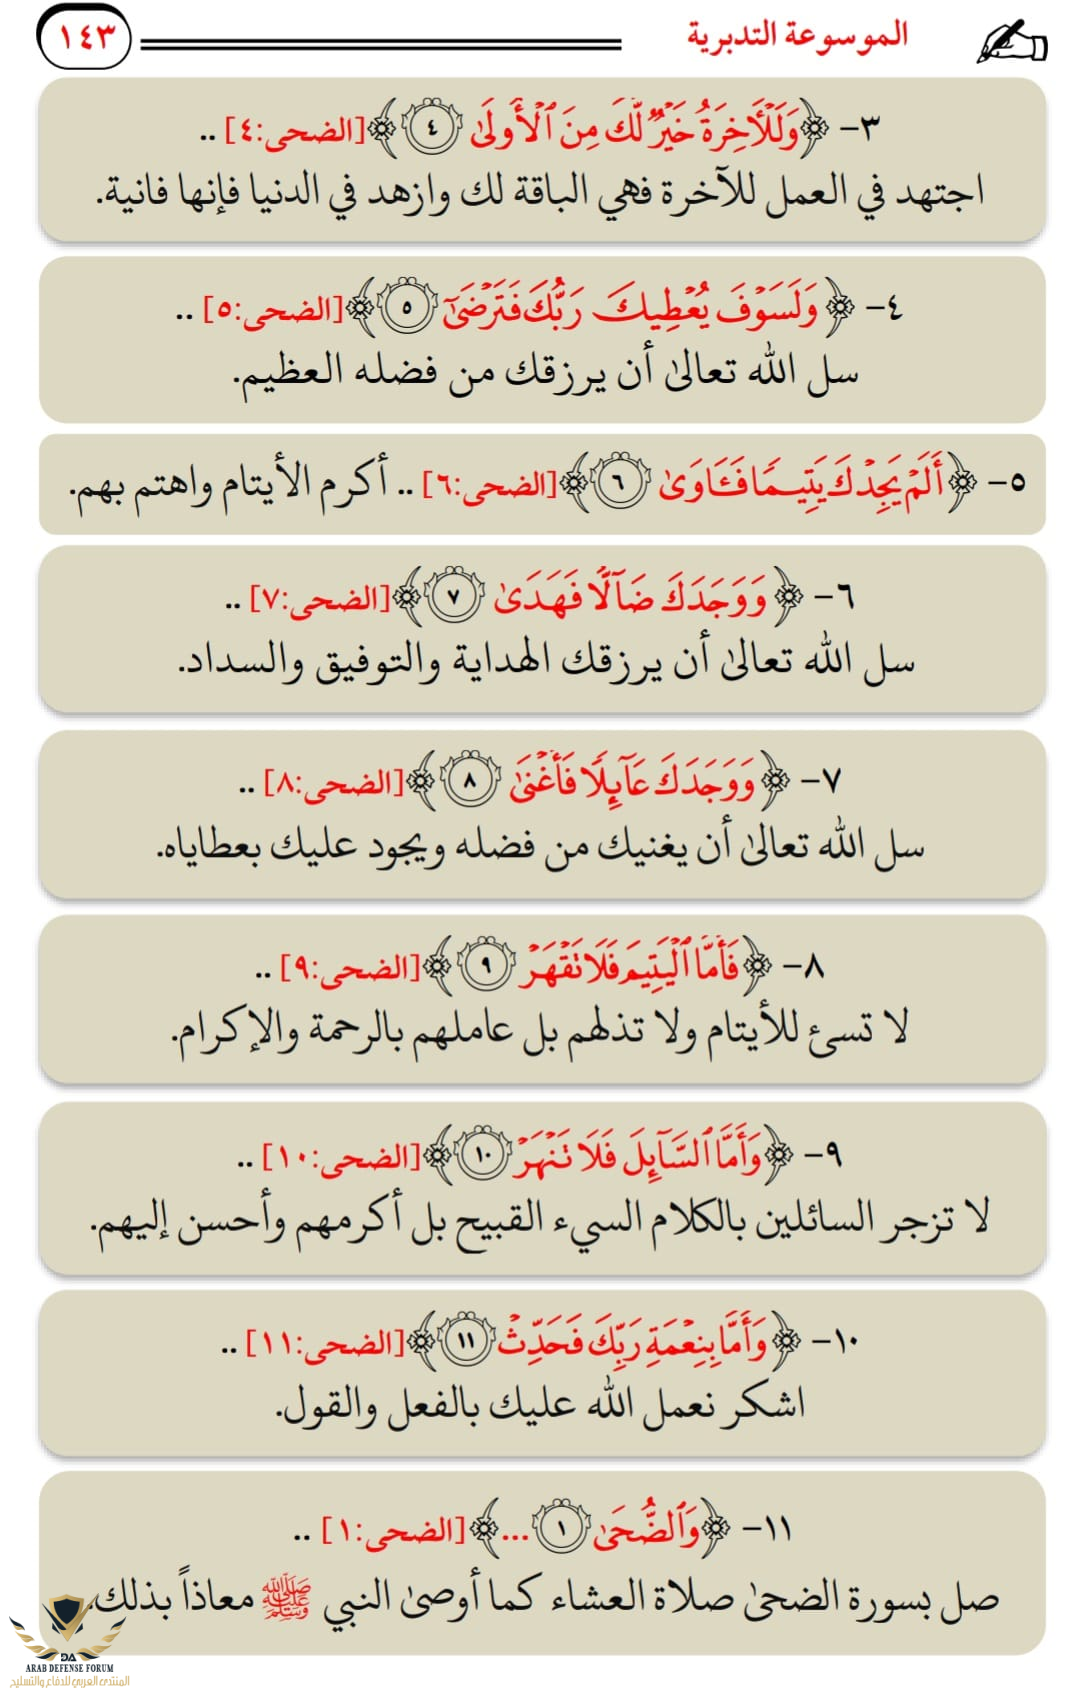 الموسوعة التدبرية ١٤٣
٣- ﴿وَلَلْـَٔاخِرَةُ خَيْرٌ لَّكَ مِنَ ٱلْأُولَىٰ ٤﴾ [الضحى:٤] ..
اجتهد في العمل للآخرة فهي الباقة لك وازهد في الدنيا فإنها فانية.
٤- ﴿وَلَسَوْفَ يُعْطِيكَ رَبُّكَ فَتَرْضَىٰٓ ٥﴾ [الضحى:٥] ..
سل الله تعالىٰ أن يرزقك من فضله العظيم.
٥- ﴿أَلَمْ يَجِدْكَ يَتِيمًا فَـَٔاوَىٰ ٦﴾ [الضحى:٦] .. أكرم الأيتام واهتم بهم.
٦- ﴿وَوَجَدَكَ ضَآلًّا فَهَدَىٰ ٧﴾ [الضحى:٧] ..
سل الله تعالىٰ أن يرزقك الهداية والتوفيق والسداد.
٧- ﴿وَوَجَدَكَ عَآئِلًا فَأَغْنَىٰ ٨﴾ [الضحى:٨] ..
سل الله تعالىٰ أن يغنيك من فضله ويجود عليك بعطاياه.
٨- ﴿فَأَمَّا ٱلْيَتِيمَ فَلَا تَقْهَرْ ٩﴾ [الضحى:٩] ..
لا تسئ للأيتام ولا تذلهم بل عاملهم بالرحمة والإكرام.
٩- ﴿وَأَمَّا ٱلسَّآئِلَ فَلَا تَنْهَرْ ١٠﴾ [الضحى:١٠] ..
لا تزجر السائلين بالكلام السيء القبيح بل أكرمهم وأحسن إليهم.
١٠- ﴿وَأَمَّا بِنِعْمَةِ رَبِّكَ فَحَدِّثْ ١١﴾ [الضحى:١١] ..
اشكر نعمل الله عليك بالفعل والقول.
١١- ﴿وَٱلضُّحَىٰ ١ ...﴾ [الضحى:١] ..
صل بسورة الضحىٰ صلاة العشاء كما أوصىٰ النبي ﷺ معاذاً بذلك.
DA
ARAB DEFENSE FORUM
المنتدى العربي للدفاع والتسليح